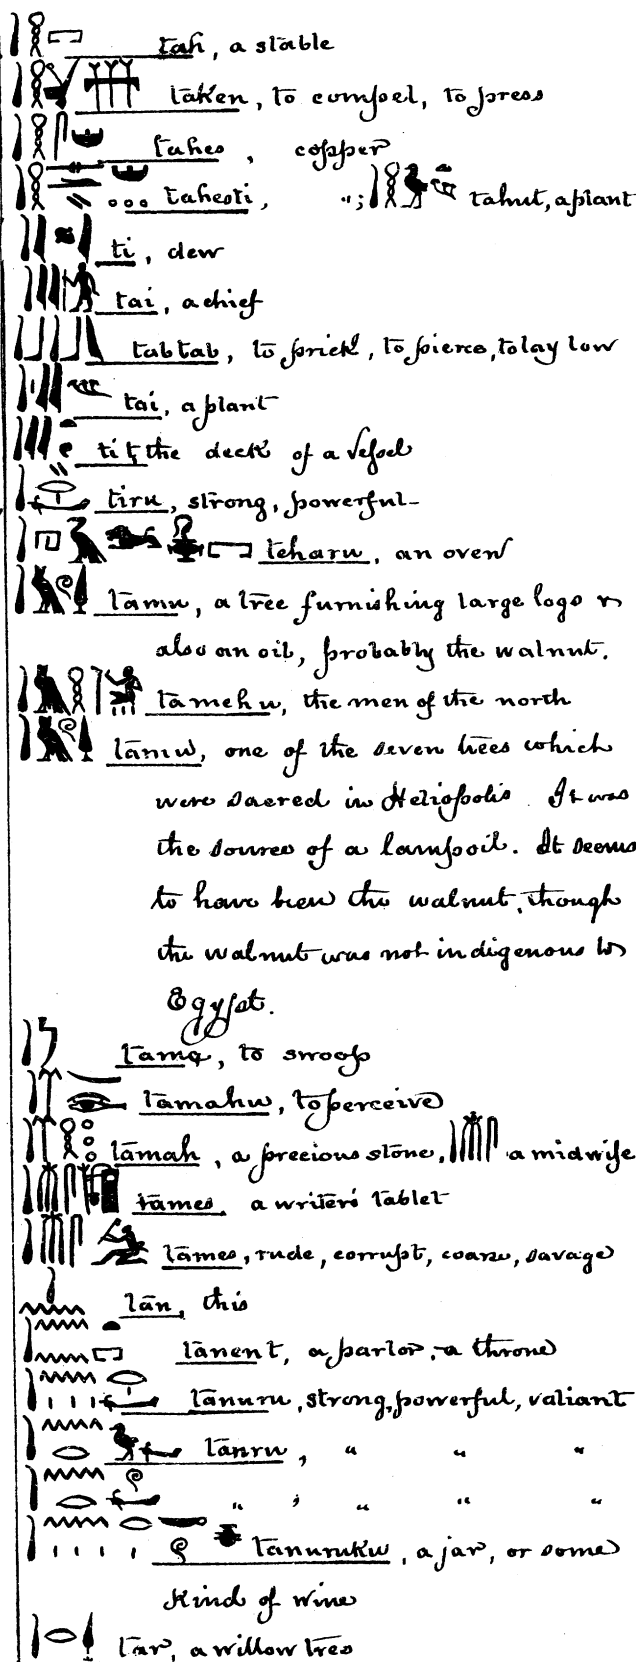 tah, a stable
taken, to compel, to press
tahes, copper
tahesti, "; tahut, a plant
ti, dew
tai, a chief
tabtab, to prick, to pierce, to lay low
tai, a plant
tit, the deck of a vessel
tiru, strong, powerful
teharu, an oven
tamu, a tree furnishing large logs &
also an oil, probably the walnut.
tamehu, the men of the north
tamu, one of the seven trees which
were sacred in Heliopolis. It was
the source of a lampoil. It seems
to have been the walnut, though
the walnut was not indigenous to
Egypt.
tamq, to swoop
tamahu, to perceive
tāmah, a precious stone, a midwife
tames, a writer's tablet
tāmes, rude, corrupt, coarse, savage
tān, this
tānent, a parlor, a throne
tānuru, strong, powerful, valiant
tānru, " " "
" ; " " "
tanuruku, a jar, or some
kind of wine
tar, a willow tree